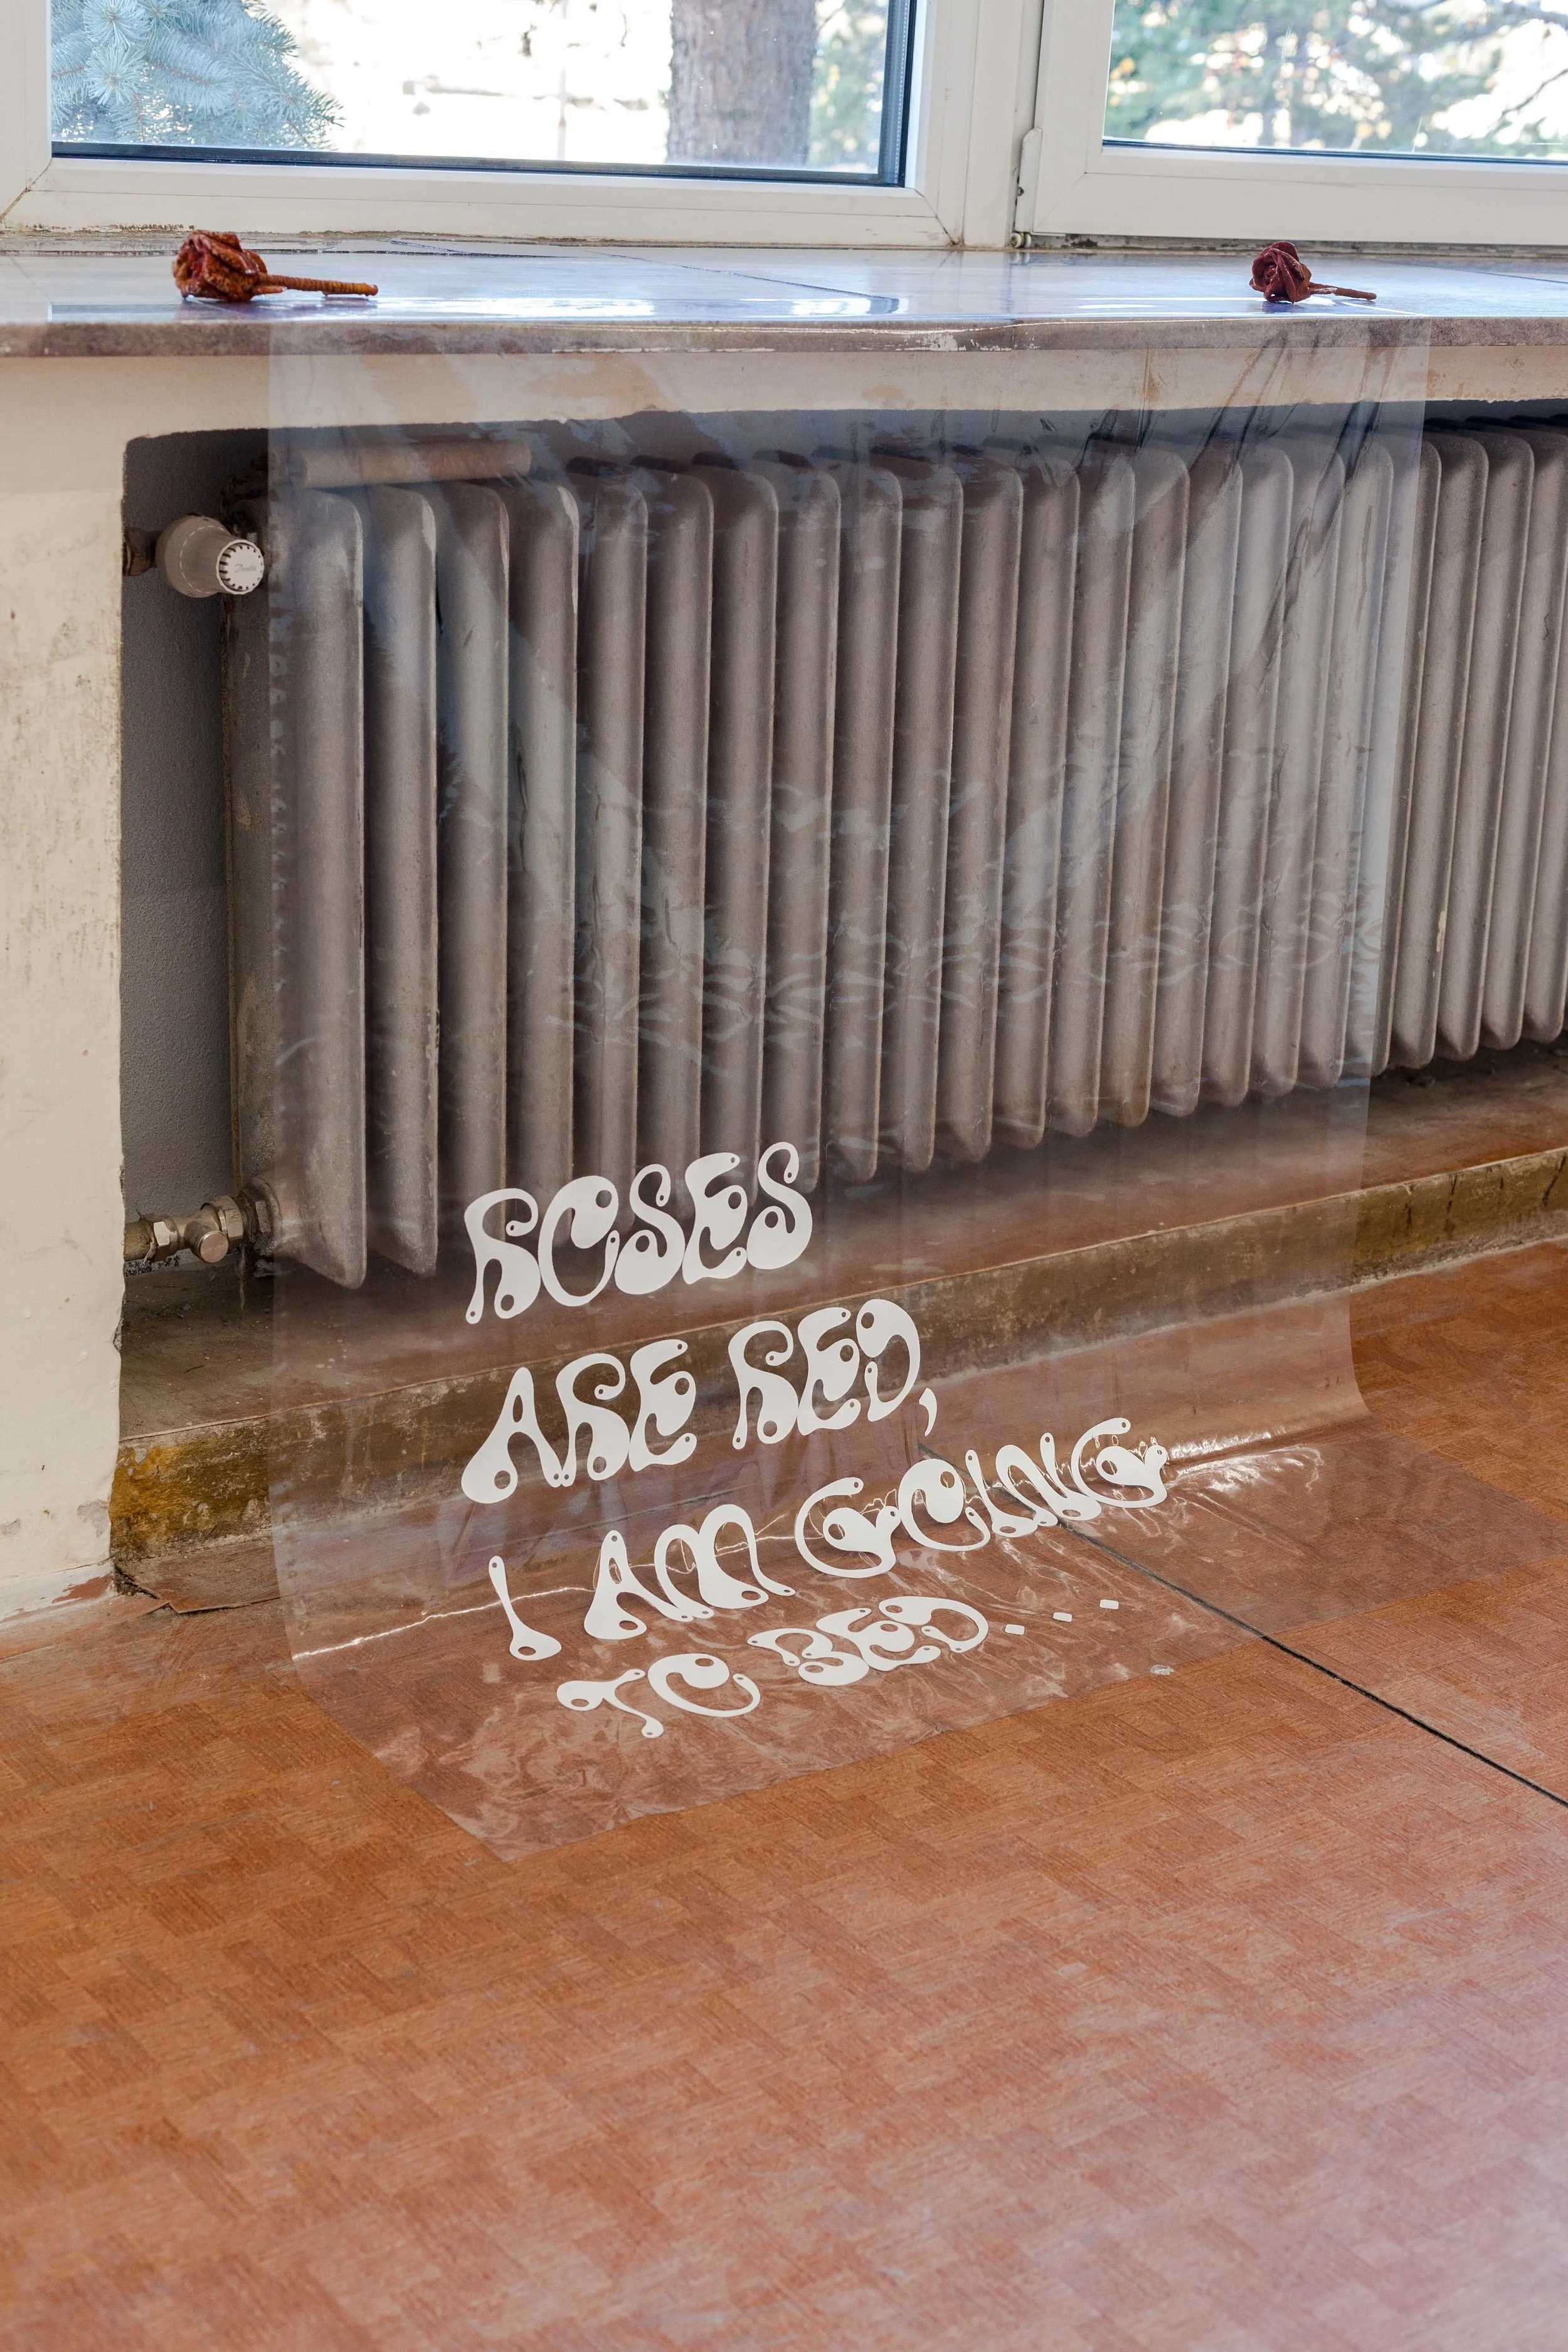 ROSES
ARE RED,
I AM GOING
TO BED...